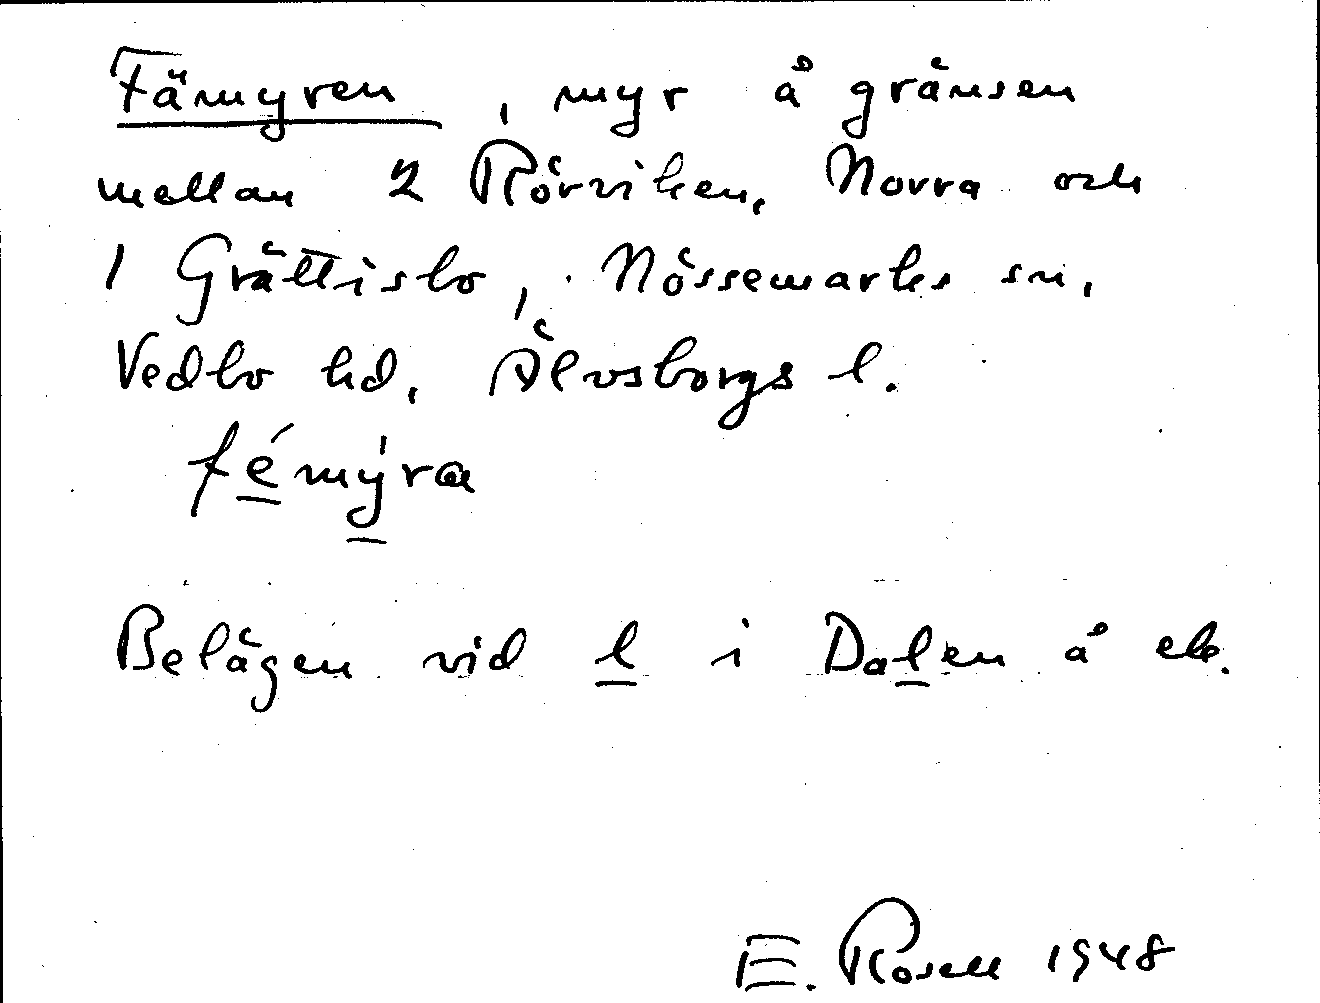 Fämyren, myr å gränsen
mellan 2 Rörviken, Norra och
1 Grättisbo, Nössemarks sn,
Vedbo hd, Älvsborgs l.
fémýra
Belägen vid l i Dalen å ek.
E. Rosell 1948